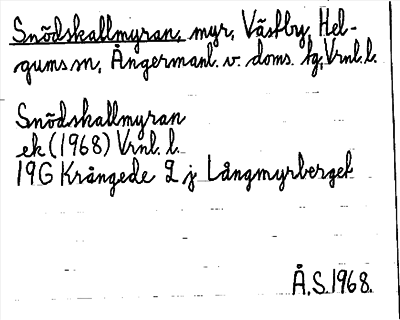 Snödskallmyran, myr, Västby, Hel-
gums sn, Ångermanl. v. doms. tg, Vrnl. l.
Snödskallmyran
ek (1968) Vrnl. l.
19G Krångede 9 j Långmyrberget
Å.S. 1968.